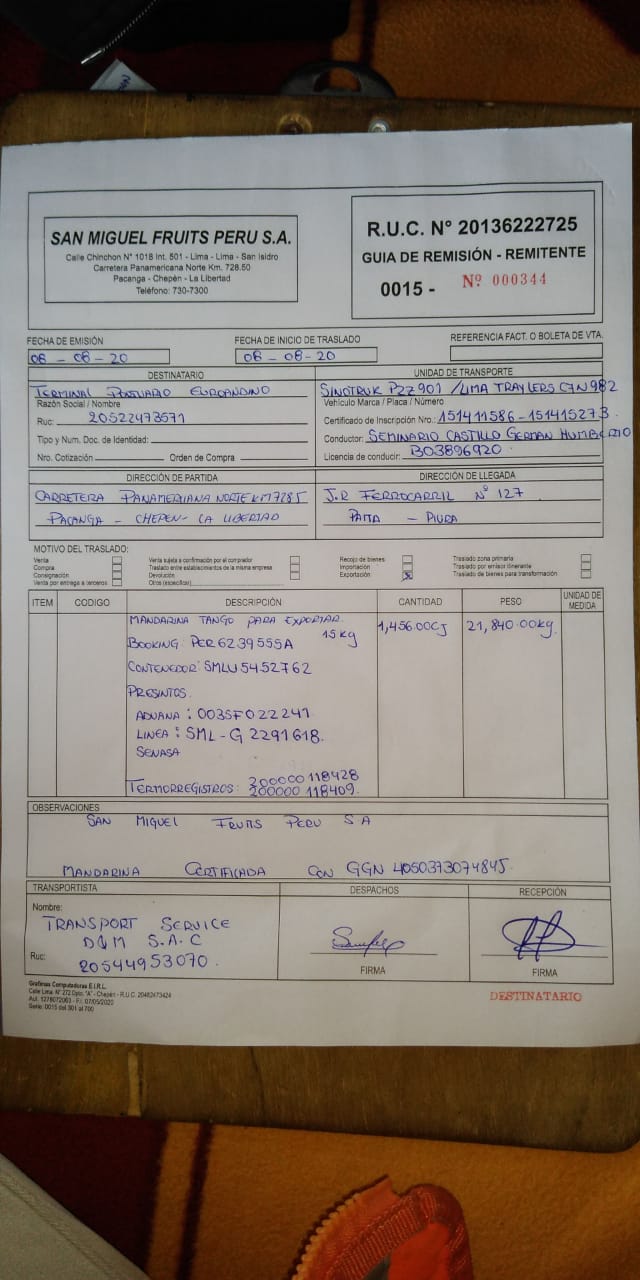 SAN MIGUEL FRUITS PERU S.A.
Calle Chinchon N° 1018 Int. 501 - Lima - Lima - San Isidro
Carretera Panamericana Norte Km. 728.50
Pacanga - Chepén - La Libertad
Teléfono: 730-7300
R.U.C. N° 20136222725
GUIA DE REMISIÓN - REMITENTE
0015 - Nº 000344
FECHA DE EMISIÓN
08 - 08 - 20
FECHA DE INICIO DE TRASLADO
08 - 08 - 20
REFERENCIA FACT. O BOLETA DE VTA.
DESTINATARIO
TERMINAL PORTUARIO EUROANDINO
Razón Social / Nombre
Ruc: 20522473571
Tipo y Num. Doc. de Identidad:
Nro. Cotización Orden de Compra
UNIDAD DE TRANSPORTE
SINOTRUK P2Z901 / LIMA TRAYLERS C7N982
Vehículo Marca / Placa / Número
Certificado de Inscripción Nro.: 151411586 - 151415273
Conductor: SEMINARIO CASTILLO GERMAN HUMBERTO
Licencia de conducir: B03896920
DIRECCIÓN DE PARTIDA
CARRETERA PANAMERICANA NORTE KM 728.5
PACANGA - CHEPEN - LA LIBERTAD
DIRECCIÓN DE LLEGADA
J.R FERROCARRIL Nº 127
PAITA - PIURA
MOTIVO DEL TRASLADO:
Venta
Compra
Consignación
Venta por entrega a terceros
Venta sujeta a confirmación por el comprador
Traslado entre establecimientos de la misma empresa
Devolución
Otros (especificar)
Recojo de bienes
Importación
Exportación X
Traslado zona primaria
Traslado por emisor itinerante
Traslado de bienes para transformación
ITEM CODIGO DESCRIPCIÓN CANTIDAD PESO UNIDAD DE MEDIDA
MANDARINA TANGO PARA EXPORTAR 1,456.00CJ 21,840.00kg.
15 kg
BOOKING: PER6239555A
CONTENEDOR: SMLU5452762
PRESINTOS.
ADUANA: 003SF022241
LINEA: SML-G 2291618.
SENASA
TERMORREGISTROS: 200000 118428
200000 118409.
OBSERVACIONES
SAN MIGUEL FRUITS PERU S A
MANDARINA CERTIFICADA CON GGN 4050373074845.
TRANSPORTISTA
Nombre:
TRANSPORT SERVICE
D&M S.A.C
Ruc: 20544953070.
DESPACHOS
FIRMA
RECEPCIÓN
FIRMA
Grafimas Computadoras E.I.R.L.
Calle Lima N° 272 Dpto. "A" - Chepén - R.U.C. 20482473424
Aut. 1278072063 - F.I. 07/05/2020
Serie: 0015 del 301 al 700
DESTINATARIO